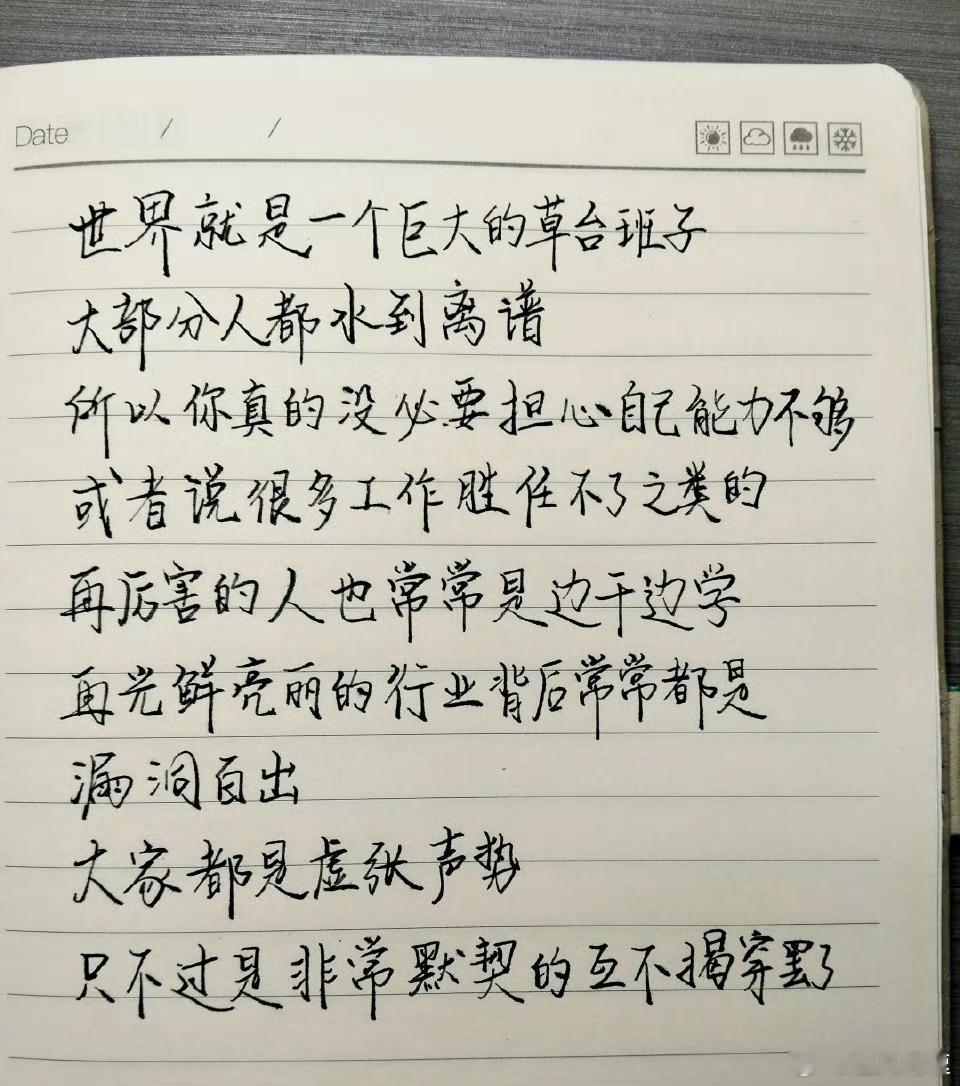 Date / /
世界就是一个巨大的草台班子
大部分人都水到离谱
所以你真的没必要担心自己能力不够
或者说很多工作胜任不了之类的
再厉害的人也常常是边干边学
再光鲜亮丽的行业背后常常都是
漏洞百出
大家都是虚张声势
只不过是非常默契的互不揭穿罢了